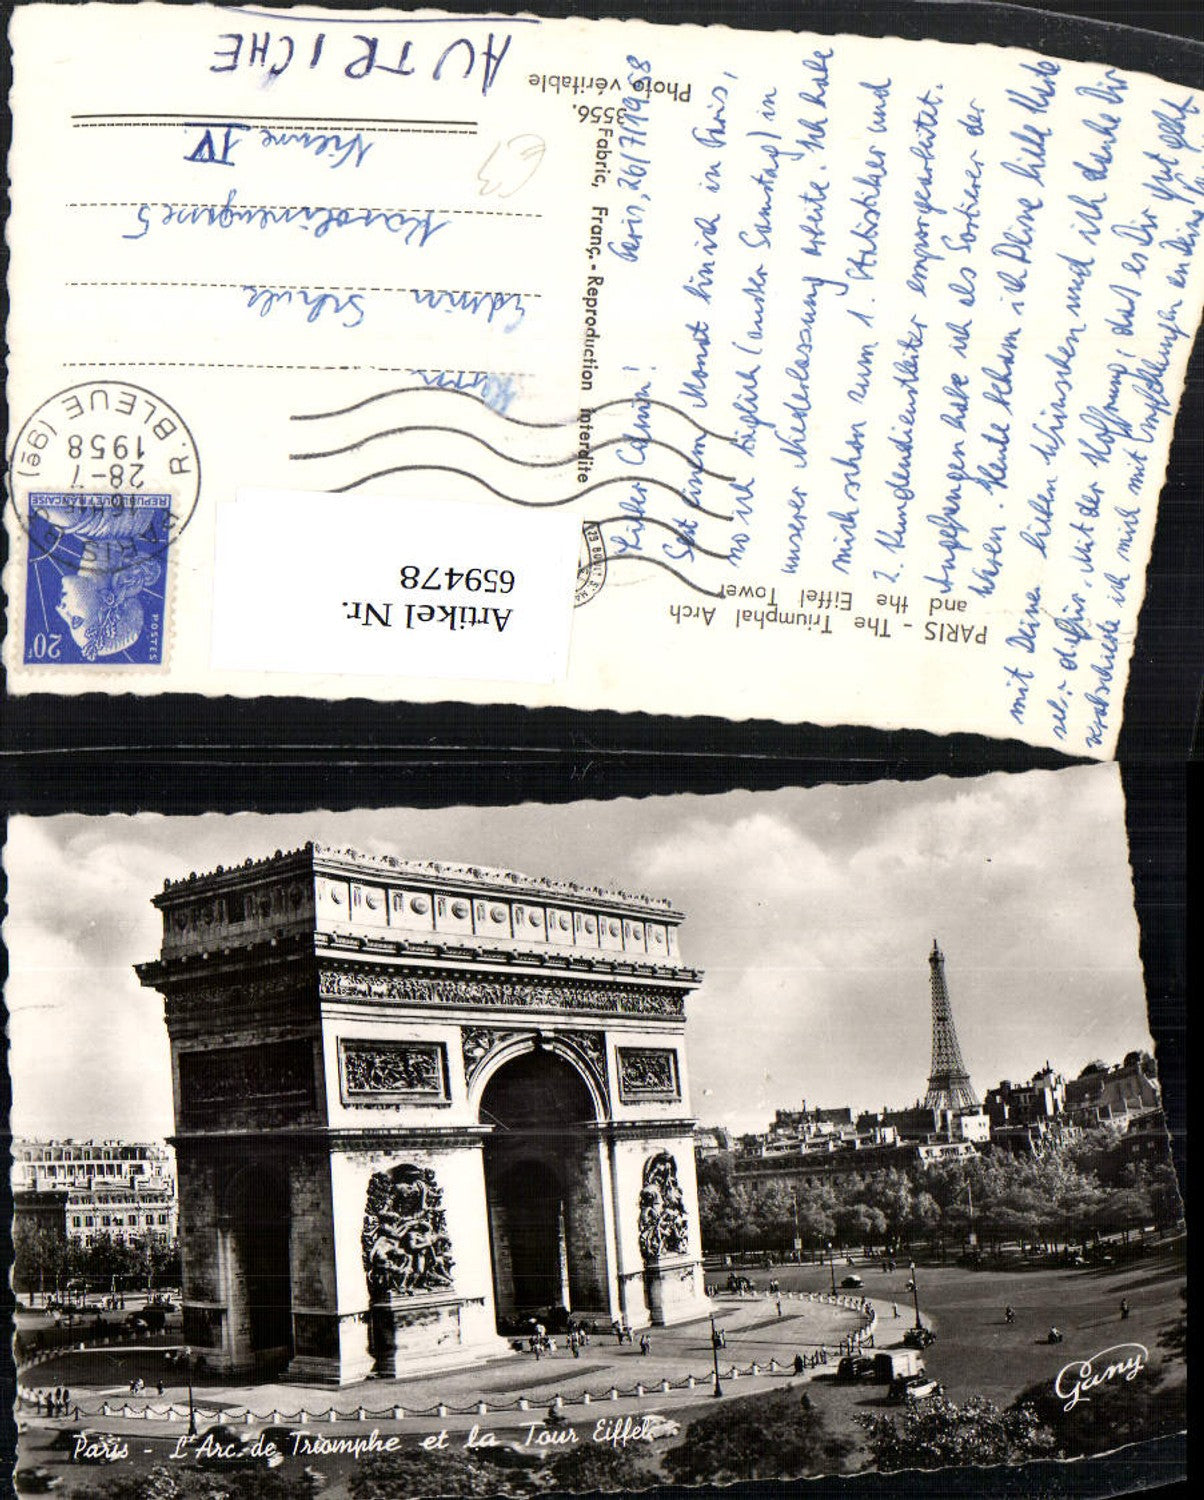 PARIS - The Triumphal Arch
and the Eiffel Tower
3556.
Photo véritable
Fabric. Franç. - Reproduction interdite
Paris, 26/7/1958
Seit einem Monat bin ich in Paris,
wo ich täglich (außer Samstag) in
unserer Niederlassung arbeite. Ich habe
mich schon zum 1. Statistiker und
2. Kundendienstleiter emporgearbeitet.
Angefangen habe ich als Sortierer der
Waren. Heute bekam ich Deine liebe Karte
mit Deinen lieben Wünschen und ich danke Dir
Mit der Hoffnung, daß es Dir gut geht,
verabschiede ich mich mit Empfehlungen an Deine
Herrn
Edwin
Karolinengasse 5
Vienne IV
AUTRICHE
R. BLEUE (9e)
PARIS
16H15
28-7
1958
REPUBLIQUE FRANÇAISE
POSTES
20F
Artikel Nr.
659478
Paris - L'Arc de Triomphe et la Tour Eiffel
Gany